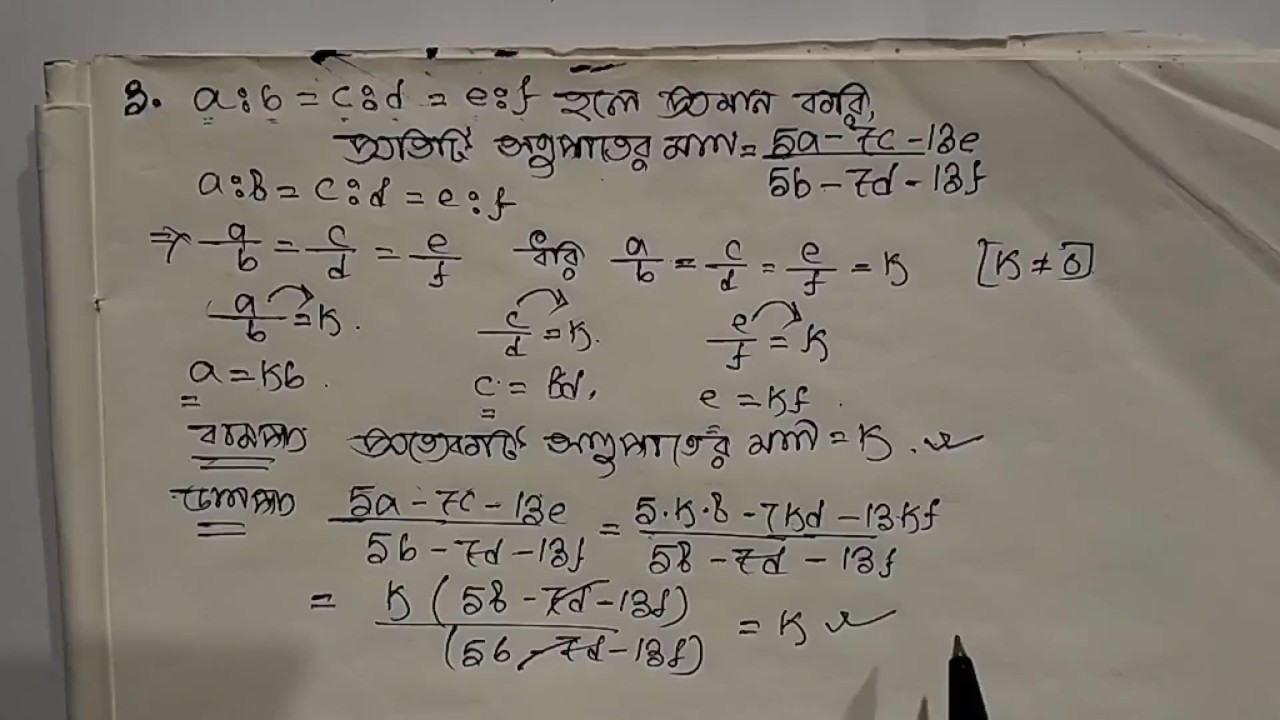 3. a:b = c:d = e:f হলে প্রমান করি,
প্রতিটি অনুপাতের মান = (5a - 7c - 13e)/(5b - 7d - 13f)
a:b = c:d = e:f
⇒ a/b = c/d = e/f ধরি a/b = c/d = e/f = K [K ≠ 0]
a/b = K. c/d = K. e/f = K
a = Kb. c = Kd, e = Kf.
বামপক্ষ প্রত্যেকটি অনুপাতের মান = K.
ডানপক্ষ (5a - 7c - 13e)/(5b - 7d - 13f) = (5.K.b - 7Kd - 13Kf)/(5b - 7d - 13f)
= K(5b - 7d - 13f)/(5b - 7d - 13f) = K